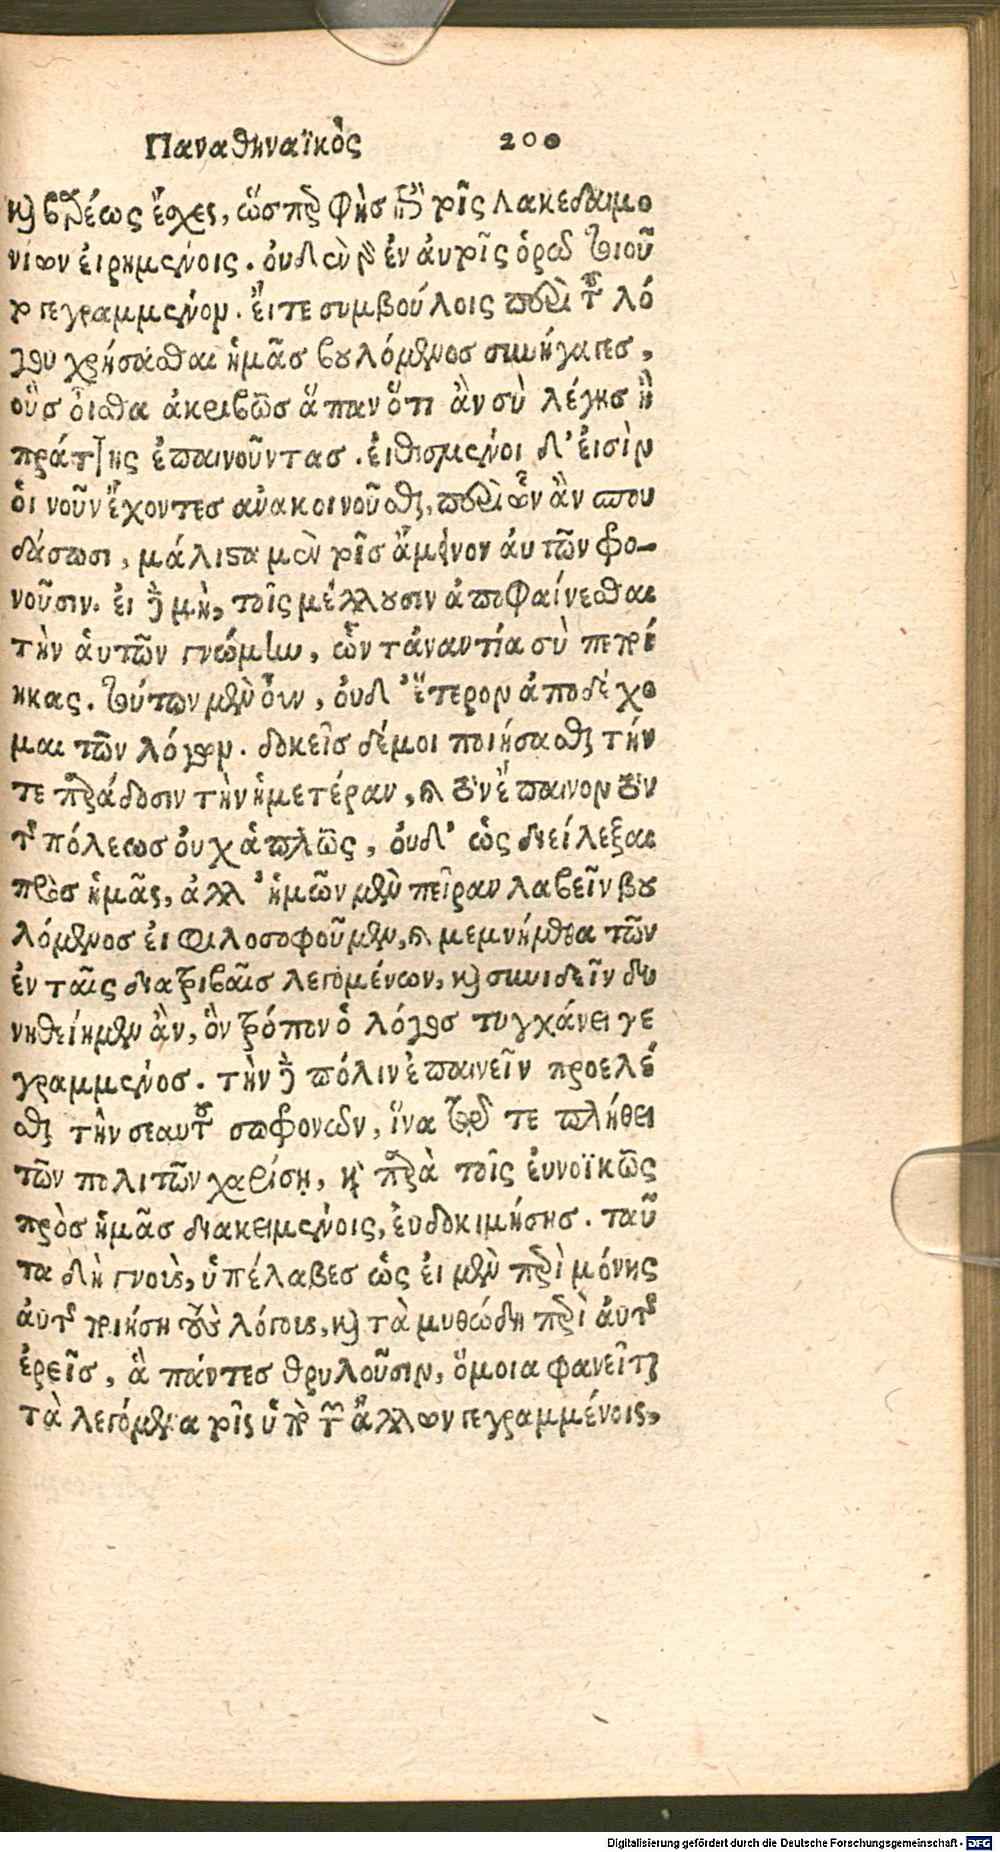 Παναθηναϊκὸς 200
καὶ βραδέως ἔσχες, ὥσπερ φὴς ἐπὶ τοῖς Λακεδαιμο
νίων εἰρημένοις. οὐδὲν γὰρ ἐν αὐτοῖς ὁρῶ τοιοῦ
τ γεγραμμένον. εἴτε συμβούλοις περὶ τοῦ λό
γου χρήσασθαι ἡμᾶσ βουλόμενοσ συνήγαγεσ,
οὓσ οἶσθα ἀκριβῶσ ἅπαν ὅτι ἂν σὺ λέγησ ἢ
πράττῃς ἐπαινοῦντασ. εἰθισμένοι δ' εἰσὶν
οἱ νοῦν ἔχοντεσ ἀνακοινοῦσθαι, περὶ ὧν ἂν σπου
δάσωσι, μάλιστα μὲν τοῖσ ἄμεινον αὐτῶν φρο-
νοῦσιν. εἰ δὲ μὴ, τοῖς μέλλουσιν ἀποφαίνεσθαι
τὴν αὑτῶν γνώμην, ὧν τἀναντία σὺ πεποί
ηκας. τούτων μὲν οὖν, οὐδ' ἕτερον ἀποδέχο
μαι τῶν λόγων. δοκεῖσ δέμοι ποιήσασθαι τήν
τε παράδοσιν τὴν ἡμετέραν, καὶ τὸν ἔπαινον τὸν
τῆς πόλεωσ οὐχ ἁπλῶς, οὐδ' ὡς διείλεξαι
πρὸσ ἡμᾶς, ἀλλ' ἡμῶν μὲν πεῖραν λαβεῖν βου
λόμενοσ εἰ φιλοσοφοῦμεν, καὶ μεμνήμεθα τῶν
ἐν ταῖς διατριβαῖσ λεγομένων, καὶ συνιδεῖν δυ
νηθείημεν ἂν, ὃν τρόπον ὁ λόγοσ τυγχάνει γε
γραμμένοσ. τὴν δὲ πόλιν ἐπαινεῖν προελέ
σθαι τὴν σεαυτοῦ σωφρονῶν, ἵνα τῷ τε πλήθει
τῶν πολιτῶν χαρίσῃ, καὶ παρὰ τοῖς εὐνοϊκῶς
πρὸσ ἡμᾶσ διακειμένοις, εὐδοκιμήσησ. ταῦ
τα δὴ γνοὺς, ὑπέλαβεσ ὡς εἰ μὲν περὶ μόνης
αὐτῆς ποιήση τοὺς λόγους, καὶ τὰ μυθώδη περὶ αὐτῆς
ἐρεῖσ, ἃ πάντεσ θρυλοῦσιν, ὅμοια φανεῖται
τὰ λεγόμενα τοῖς ὑπὸ τῶν ἄλλων γεγραμμένοις,
Digitalisierung gefördert durch die Deutsche Forschungsgemeinschaft - DFG